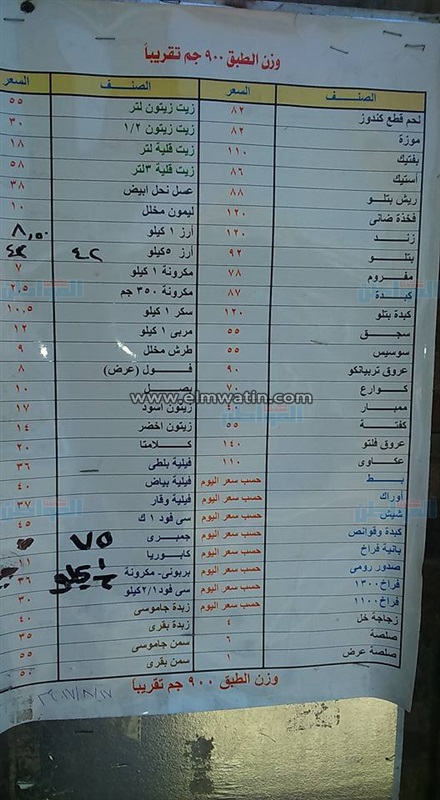 وزن الطبق ٩٠٠ جم تقريباً
الصنف السعر الصنف السعر
لحم قطع كندوز ٨٢ زيت زيتون لتر ٥٥
موزة ٨٢ زيت زيتون ١/٢ ٣٠
بفتيك ١١٠ زيت قلية لتر ١٨
أستيك ٨٦ زيت قلية ٣لتر ٥٨
ريش بتلو ٨٨ عسل نحل ابيض ٣٨
فخذة ضانى ١٢٠ ليمون مخلل ١٠
زند ١٢٠ أرز ١ كيلو ٨,٥٠
بتلو ٩٢ أرز ٥كيلو ٤٢
مفروم ٧٨ مكرونة ١ كيلو ٧
كبدة ٨٧ مكرونة ٣٥٠ جم ٢,٥
كبدة بتلو ١٢٠ سكر ١ كيلو ١٠,٥
سجق ٥٥ مربى ١ كيلو ١٢
سوسيس ٥٥ طرش مخلل ٩
عروق تربيانكو ٩٠ فول (عرض) ٨
كوارع ٧٠ بصل ١٠
ممبار ٤٠ زيتون اسود ١٧
كفتة ٥٥ زيتون اخضر ١٤
عروق فلتو ١٤٠ كلامتا ٢٠
عكاوى ١١٠ فيلية بلطى ٣٦
بط حسب سعر اليوم فيلية بياض ٤٠
أوراك حسب سعر اليوم فيلية وقار ٣٧
شيش حسب سعر اليوم سى فود ١ ك ٤٥
كبدة وقوانص حسب سعر اليوم جمبرى ٧٥
بانية فراخ حسب سعر اليوم كابوريا
صدور رومى حسب سعر اليوم بربونى- مكرونة ٣٦
فراخ ١٣٠٠ حسب سعر اليوم سى فود ١/٢كيلو ٣٠
فراخ ١١٠٠ حسب سعر اليوم زبدة جاموسى ٤٠
زجاجة خل ٤ زبدة بقرى ٣٥
صلصة ٦ سمن جاموسى ٥٥
صلصة عرض ١ سمن بقرى ٥٠
وزن الطبق ٩٠٠ جم تقريباً
www.elmwatin.com
المواطن